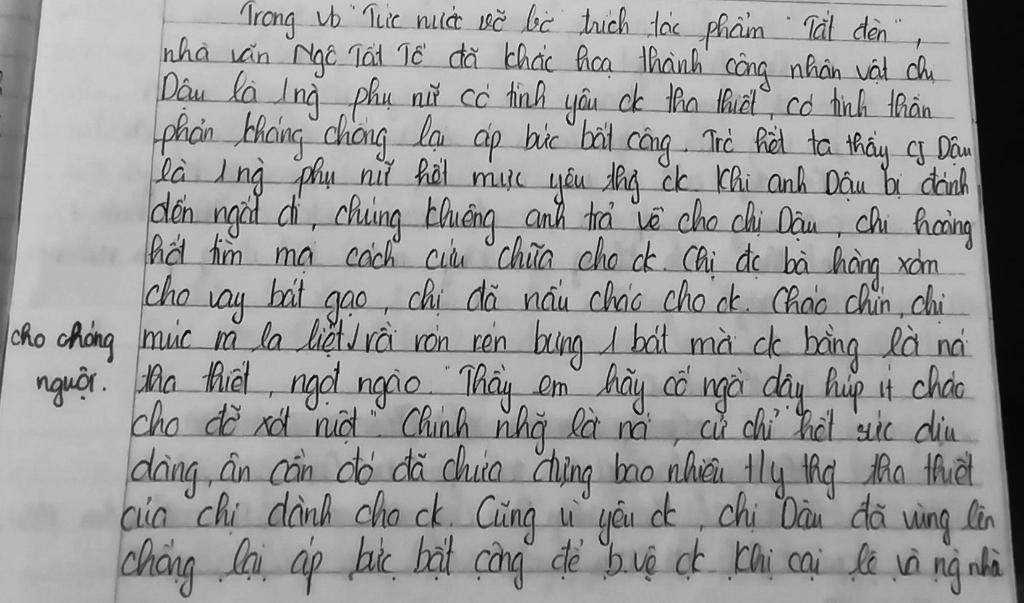 Trong vb "Tức nước vỡ bờ" trích tác phẩm "Tắt đèn",
nhà văn Ngô Tất Tố đã khắc họa thành công nhân vật chị
Dậu là 1 ng phụ nữ có tình yêu ck tha thiết, có tinh thần
phản kháng chống lại áp bức bất công. Trc hết ta thấy cj Dậu
là 1 ng phụ nữ hết mực yêu thg ck. Khi anh Dậu bị đánh
đến ngất đi, chúng khuêng anh trả về cho chị Dậu, chị hoảng
hốt tìm mọi cách cứu chữa cho ck. Chị đc bà hàng xóm
cho vay bát gạo, chị đã nấu cháo cho ck. Cháo chín, chị
múc ra la liệt cho chóng nguội. rồi rón rén bưng 1 bát mà ck bằng lời nói
tha thiết, ngọt ngào "Thầy em hãy cố ngồi dậy húp ít cháo
cho đỡ xót ruột". Chính nhg lời nói, cử chỉ hết sức dịu
dàng, ân cần đó đã chứa đựng bao nhiêu ty thg tha thiết
của chị dành cho ck. Cũng vì yêu ck, chị Dậu đã vùng lên
chống lại áp bức bất công để b.vệ ck. Khi cai lệ và ng nhà